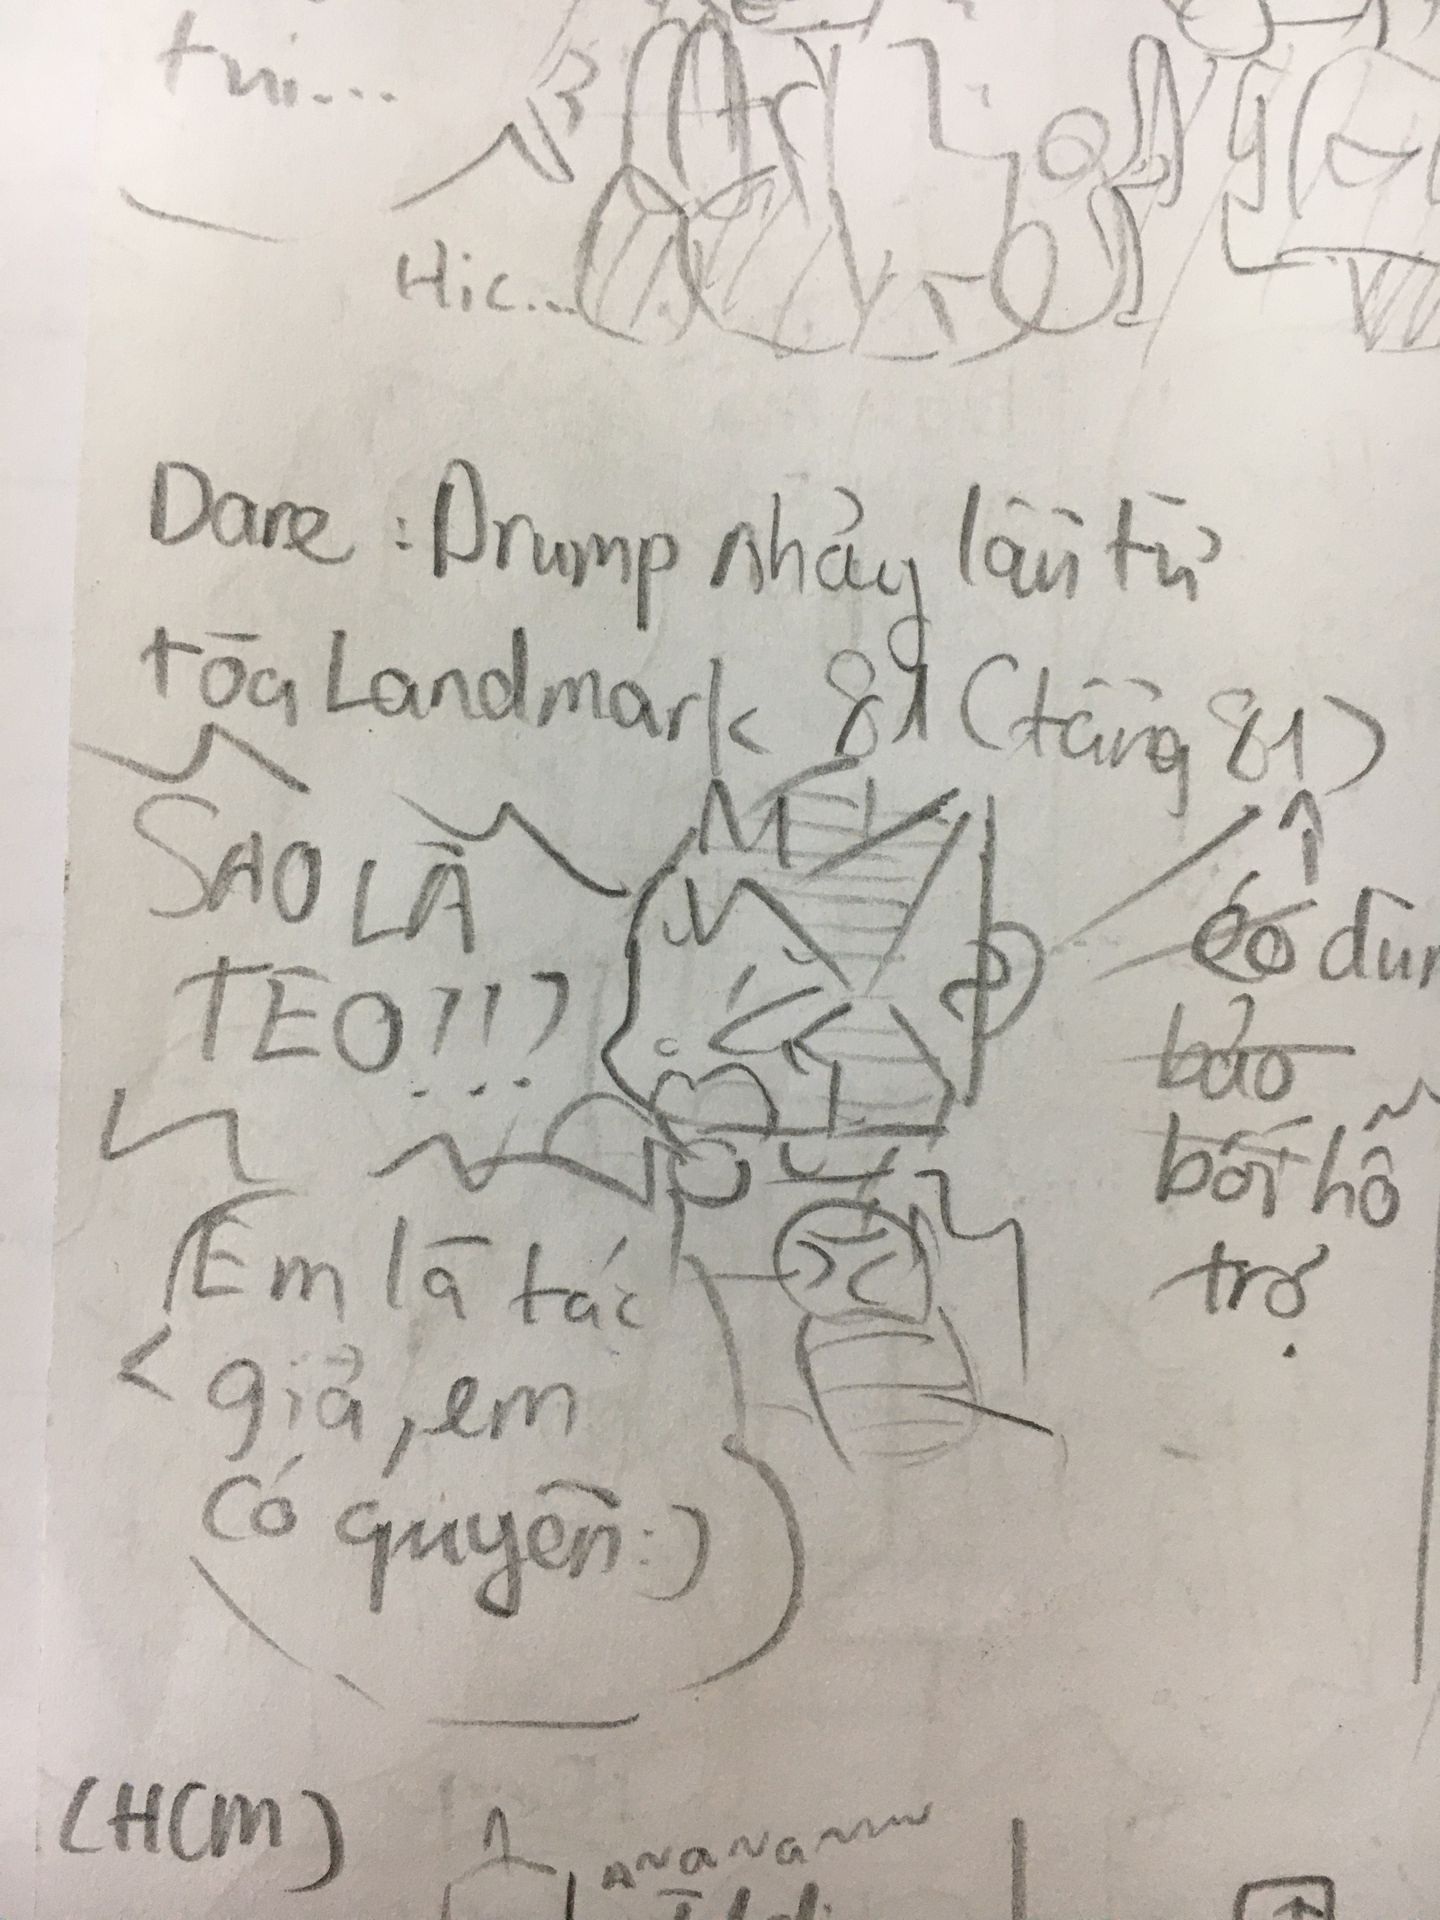 tui...
Hic...
Dare : Drump nhảy lầu từ
tòa Landmark 81 (tầng 81)
SAO LÀ
TEO?!?
éo dùn
bảo
bối hỗ
trợ
Em là tác
giả, em
có quyền :)
(HCM)